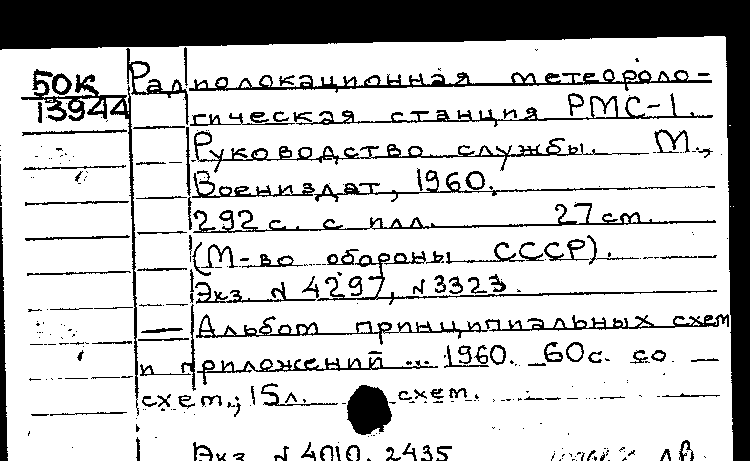 50К Радиолокационная метеороло-
13944 гическая станция РМС-1.
Руководство службы. М.,
Воениздат, 1960.
292 с. с илл. 27 см.
(М-во обороны СССР).
Экз. N 4297, N 3323.
— Альбом принципиальных схем
и приложений ... 1960. 60с. со —
схем.; 15л. схем.
Экз. N 4010, 2435